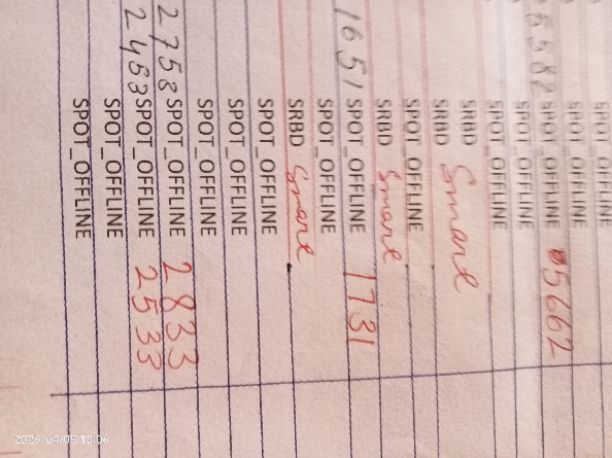 SPOT_OFFLINE
SPOT_OFFLINE
5582 SPOT_OFFLINE 5662
SPOT_OFFLINE
SPOT_OFFLINE
SRBD Smart
SRBD
SPOT_OFFLINE
SRBD Smart
1651 SPOT_OFFLINE 1731
SPOT_OFFLINE
SRBD Smart
SPOT_OFFLINE
SPOT_OFFLINE
SPOT_OFFLINE
2758 SPOT_OFFLINE 2833
2453 SPOT_OFFLINE 2533
SPOT_OFFLINE
SPOT_OFFLINE
2025/04/09 13:06